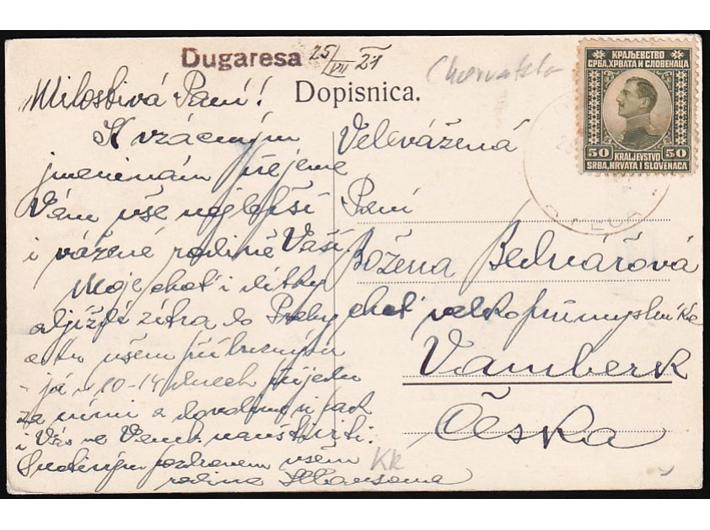 Dugaresa 25/VII 21
Chorvatsko
КРАЉЕВСТВО
СРБА, ХРВАТА И СЛОВЕНАЦА
50 KRALJEVSTVO 50
SRBA, HRVATA I SLOVENACA
Dopisnica.
Milostivá Paní!
K vzácným
jmeninám přejeme
Vám vše nejlepší
i vážené rodině Vaší.
Moje choť i dítky
odjíždí zítra do Prahy
všem příbuzným
já v 10-14 dnech přijedu
za nimi a
i Vás ve Vamb. navštíviti.
Srdečným pozdravem všem
rodina
Velevážená
Paní
Božena Bednářová
choť velkoprůmyslníka
Vamberk
Česka
KK